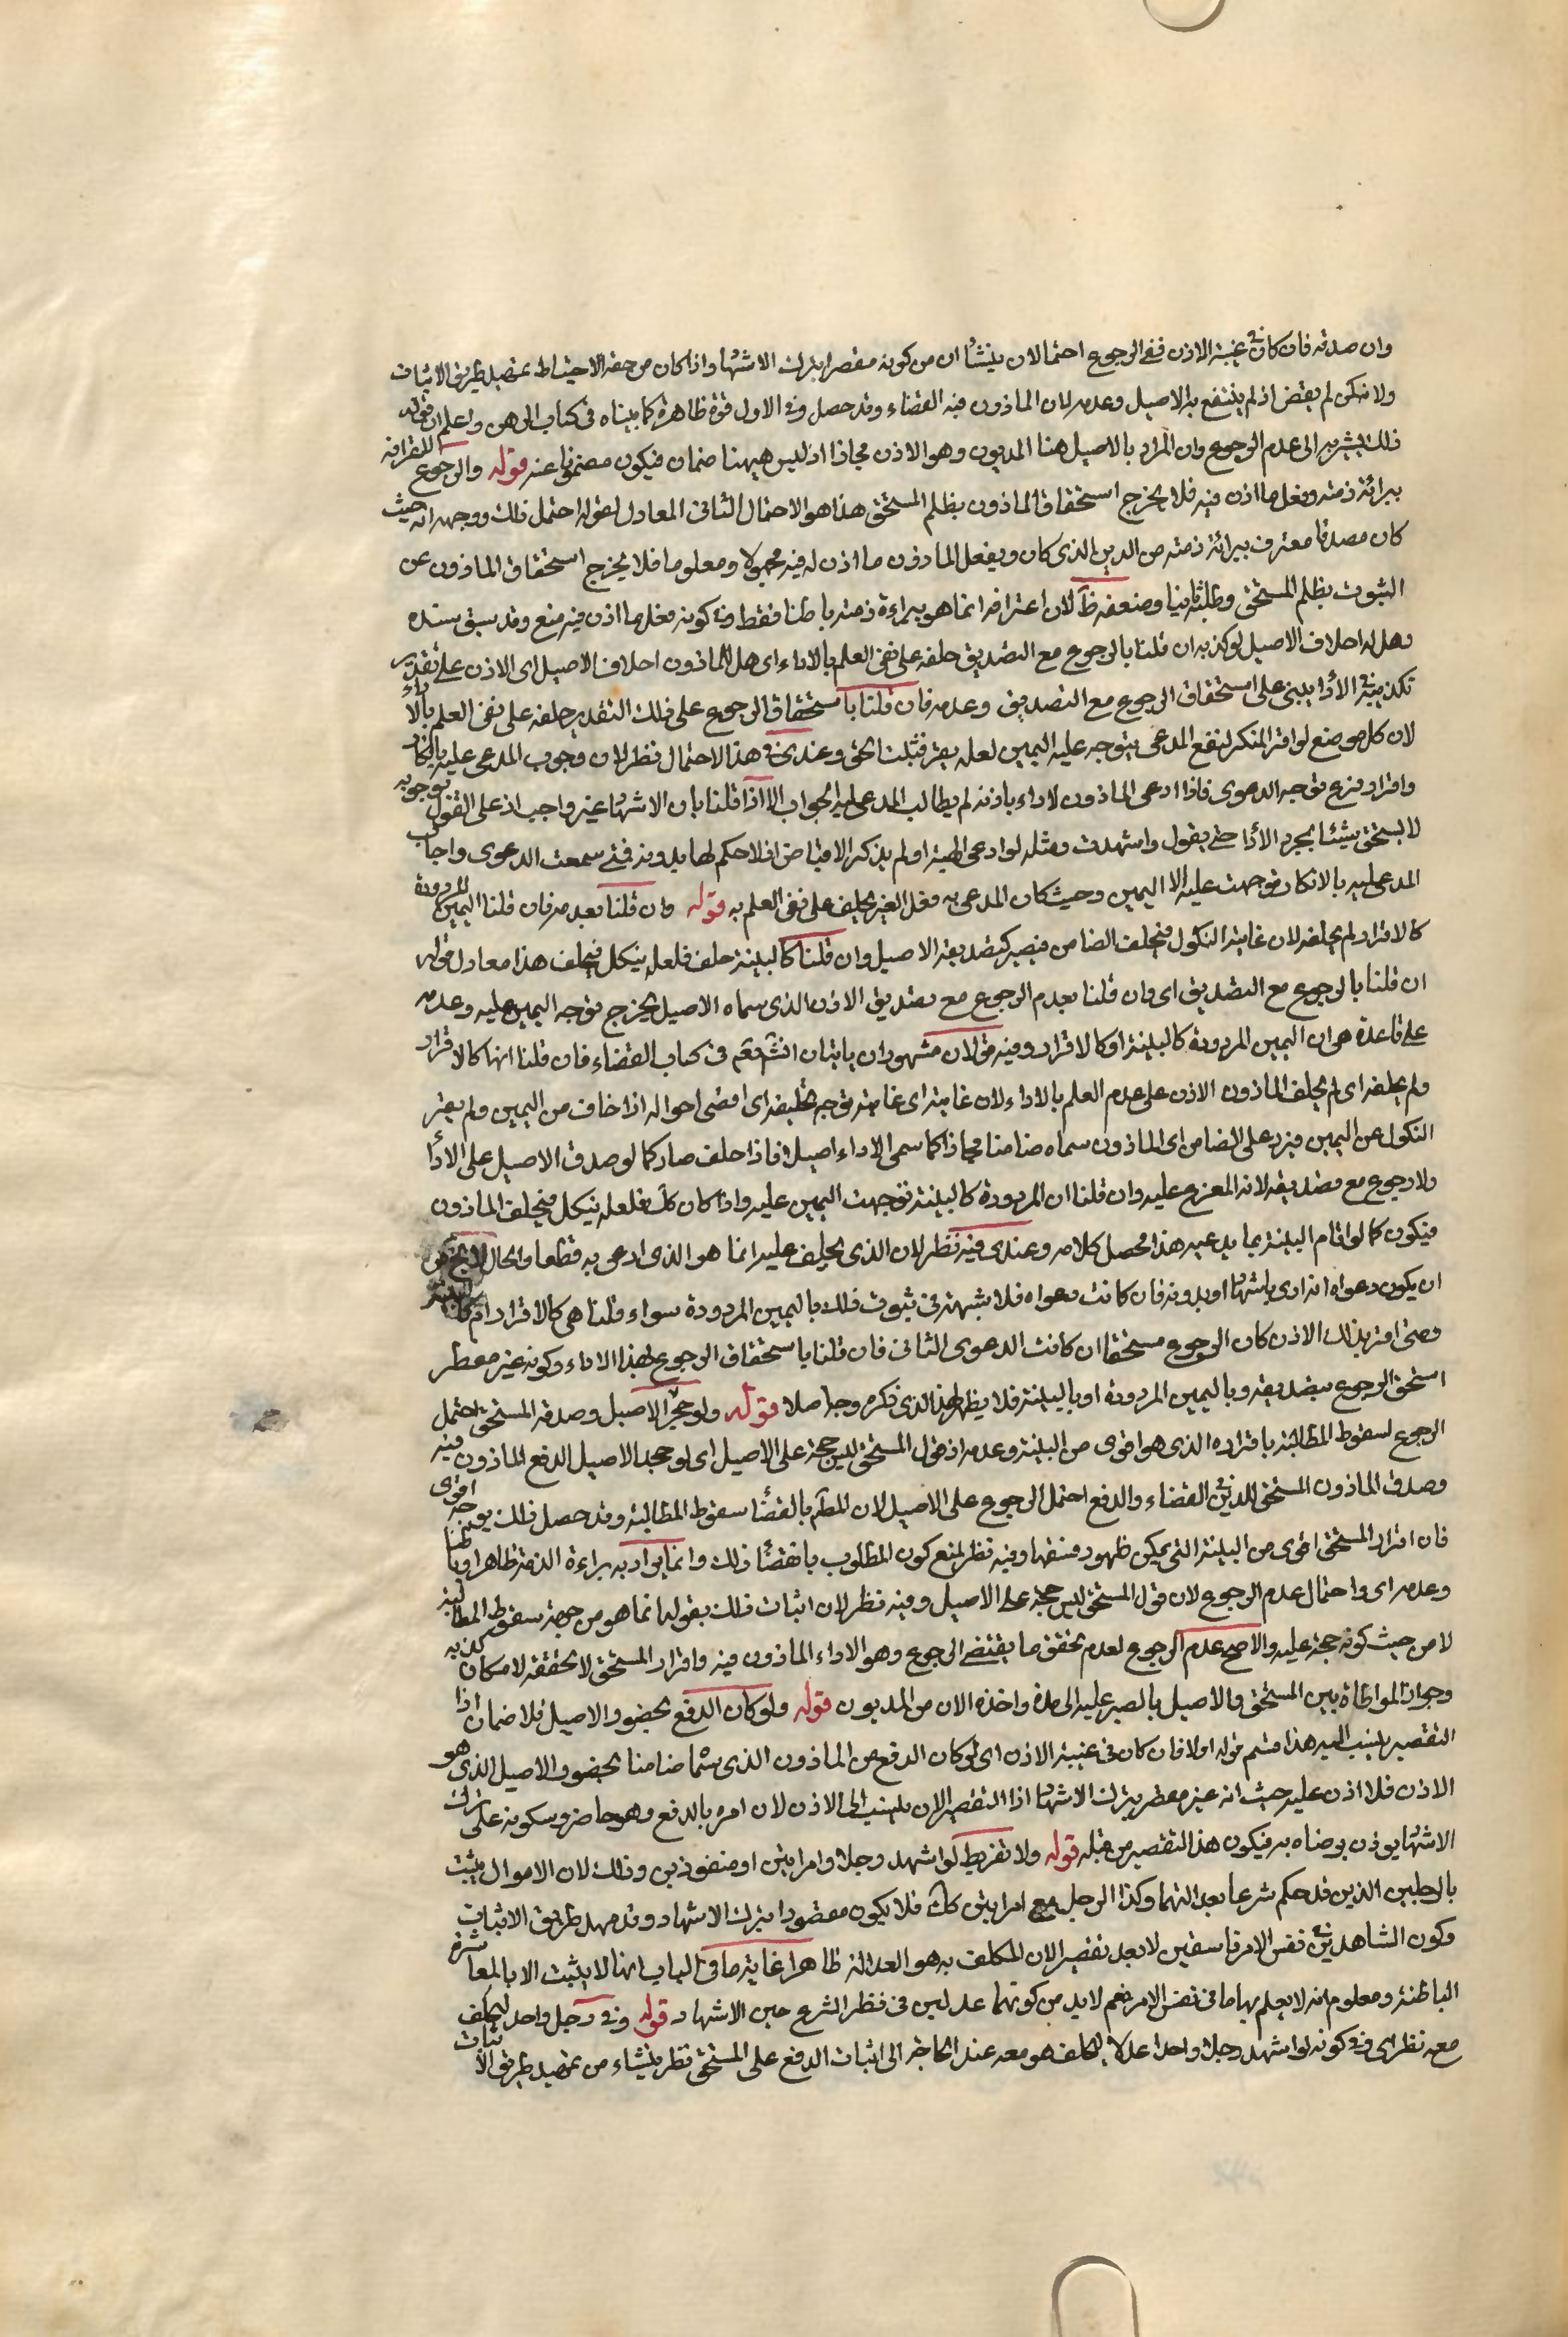 وان صدقه فان كان فى غيبة الاذن ففى الرجوع احتمالان ينشأ ان من كونه مقصرا بترك الاشهاد اذ كان من حقه الاحتياط بتمهيد طريق الاثبات
ولانه كمن لم يقض اذ لم ينتفع به الاصيل وعدمه لان الماذون فيه القضاء وقد حصل وفى الاول قوة ظاهرة كما بيناه فى كتاب الرهن واعلم ان قوله
ذلك يشير به الى عدم الرجوع وان المراد بالاصيل هنا المديون وهو الاذن مجازا اذ ليس هيهنا ضمان فيكون مضمونا عنه قوله والرجوع للاعترافه
ببرائة ذمته وفعل ما اذن فيه فلا يخرج استحقاق الماذون بظلم المستحق هذا هو الاحتمال الثانى المعادل لقوله احتمل ذلك ووجهه انه حيث
كان مصدقا معترف ببرائة ذمته من الدين الذى كان وبفعل الماذون ما اذن له فيه مجهولا ومعلوما فلا يخرج استحقاق الماذون عن
الثبوت بظلم المستحق وطلبه ثانيا وضعفه ظ لان اعترافه انما هو ببراءة ذمته باطنا فقط وفى كونه فعل ما اذن فيه منع وقد سبق سنده
وهل له احلاف الاصيل لو كذبه ان قلنا بالرجوع مع التصديق حلفه على نفى العلم بالاداء اى هل للماذون احلاف الاصيل اى الاذن على تقدير
تكذيبه فى الأدا يبنى على استحقاق الرجوع مع التصديق وعدمه فان قلنا باستحقاق الرجوع على ذلك التقدير حلفه على نفى العلم بالاداء
لان كل موضع لو اقر المنكر لنفع المدعى يتوجه عليه اليمين لعله يقر فثبت الحق وعندى فى هذا الاحتمال نظر لان وجوب المدعى عليه بانكار
واقرار فرع توجه الدعوى فاذا ادعى الماذون لاداء باذنه لم يطالب المدعى عليه بالجواب الا اذا قلنا بان الاشهاد غير واجب اذ على القول بوجوبه
لا يستحق شيئا بمجرد الأدا حتى يقول واشهدت ومثله لو ادعى الهبة او لم يذكر الاقباض اذ لا حكم لها بدونه فمتى سمعت الدعوى واجاب
المدعى عليه بالانكار توجهت عليه الا اليمين وحيث كان المدعى به فعل الغير يحلف على نفى العلم به قوله وان قلنا بعدمه فان قلنا اليمين المردودة
كالاقرار لم يحلفه لان غايته النكول فيحلف الضامن فيصير كتصديقه الاصيل وان قلنا كالبينة حلف فلعله ينكل فيحلف هذا معادل قوله
ان قلنا بالرجوع مع التصديق اى وان قلنا بعدم الرجوع مع تصديق الاذن الذى سماه الاصيل يخرج توجه اليمين عليه وعدمه
على قاعدة هى ان اليمين المردودة كالبينة او كالاقرار وفيه قولان مشهوران ياتيان انش تعم فى كتاب القضاء فان قلنا انها كالاقرار
ولم يحلفه اى لم يحلف الماذون الاذن على عدم العلم بالاداء لان غايته اى غاية توجه تحليفه اى اقصى احواله اذا خاف من اليمين ولم يقر
النكول عن اليمين فيرد على الضامن اى الماذون سماه ضامنا مجازا كما سمى الاداء اصيلا فاذا حلف صار كما لو صدق الاصيل على الأدا
ولا رجوع مع تصديقه لانه المعزع عليه وان قلنا ان المردودة كالبينة توجهت اليمين عليه واذا كان كك فلعله ينكل فيحلف الماذون
فيكون كما لو اقام البينة بما يدعيه هذا محصل كلامه وعندى فيه نظر لان الذى يحلف عليه انما هو الذى ادعى به قطعا والحال لا يخ من
ان يكون دعواه انه ادى باشهاد او بدونه فان كانت دعواه فلا شبهة فى ثبوت ذلك باليمين المردودة سواء قلنا هى كالاقرار ام كالبينة
ومتى اقر بذلك الاذن كان الرجوع مستحقا ان كانت الدعوى الثانى فان قلنا باستحقاق الرجوع بهذا الاداء وكونه غير مفطر
استحق الرجوع بتصديقه وباليمين المردودة او بالبينة فلا يظهر لهذا الذى ذكره وجه اصلا قوله ولو جحد الاصيل وصدقه المستحق احتمل
الرجوع لسقوط المطالبة باقراره الذى هو اقوى من البينة وعدمه اذ قول المستحق ليس حجة على الاصيل اى لو جحد الاصيل الدفع الماذون فيه
وصدق الماذون المستحق للدين فى القضاء والدفع احتمل الرجوع على الاصيل لان المطم بالقضأ سقوط المطالبة وقد حصل ذلك بوجه اقوى
فان اقرار المستحق اقوى من البينة التى يمكن ظهور فسقها وفيه نظر لمنع كون المطلوب بالقضأ ذلك وانما يراد به براءة الذمة ظاهرا وباطنا
وعدمه اى واحتمال عدم الرجوع لان قول المستحق ليس حجة على الاصيل وفيه نظر لان اثبات ذلك بقوله انما هو من جهة سقوط المطالبة
لا من حيث كونه حجة عليه والاصح عدم الرجوع لعدم تحقق ما يقتضى الرجوع وهو الاداء الماذون فيه واقرار المستحق لا يحققه لامكان كذبه
وجواز المواطاة بين المستحق والاصيل بالصبر عليه الى مدة واخذه الان من المديون قوله ولو كان الدفع بحضور الاصيل فلا ضمان اذا
التقصير ينسب اليه هذا قسيم قوله اولا فان كان فى غيبة الاذن اى لو كان الدفع من الماذون الذى سماه ضامنا بحضور الاصيل الذى هو
الاذن فلا اذن عليه حيث انه غير مفطر بترك الاشهاد اذا التقصير الان ينسب الى الاذن لان امره بالدفع وهو حاضر وسكوته على ترك
الاشهاد يوذن برضاه به فيكون هذا التقصير من قبله قوله ولا تفريط لو اشهد رجلا وامراتين او مستورين وذلك لان الاموال يثبت
بالرجلين الذين قد حكم شرعا بعدالتهما وكذا الرجل مع امراتين كك فلا يكون مقصودا بترك الاشهاد وقد مهد طريق الاثبات
وكون الشاهدين فى نفس الامر فاسقين لا يعد تقصيرا لان المكلف به هو العدالة ظاهرا غاية ما فى الباب انها لا يثبت الا بالمعاشرة
الباطنة ومعلوم انه لا يعلم بها ما فى نفس الامر نعم لا بد من كونهما عدلين فى نظر الشرع حين الاشهاد قوله وفى رجل واحد ليحلف
معه نظر اى فى كونه لو اشهد رجلا واحدا عدلا ليحلف هو معه عند الحاجة الى اثبات الدفع على المستحق نظر ينشاء من تمهيد طريق الاثبات